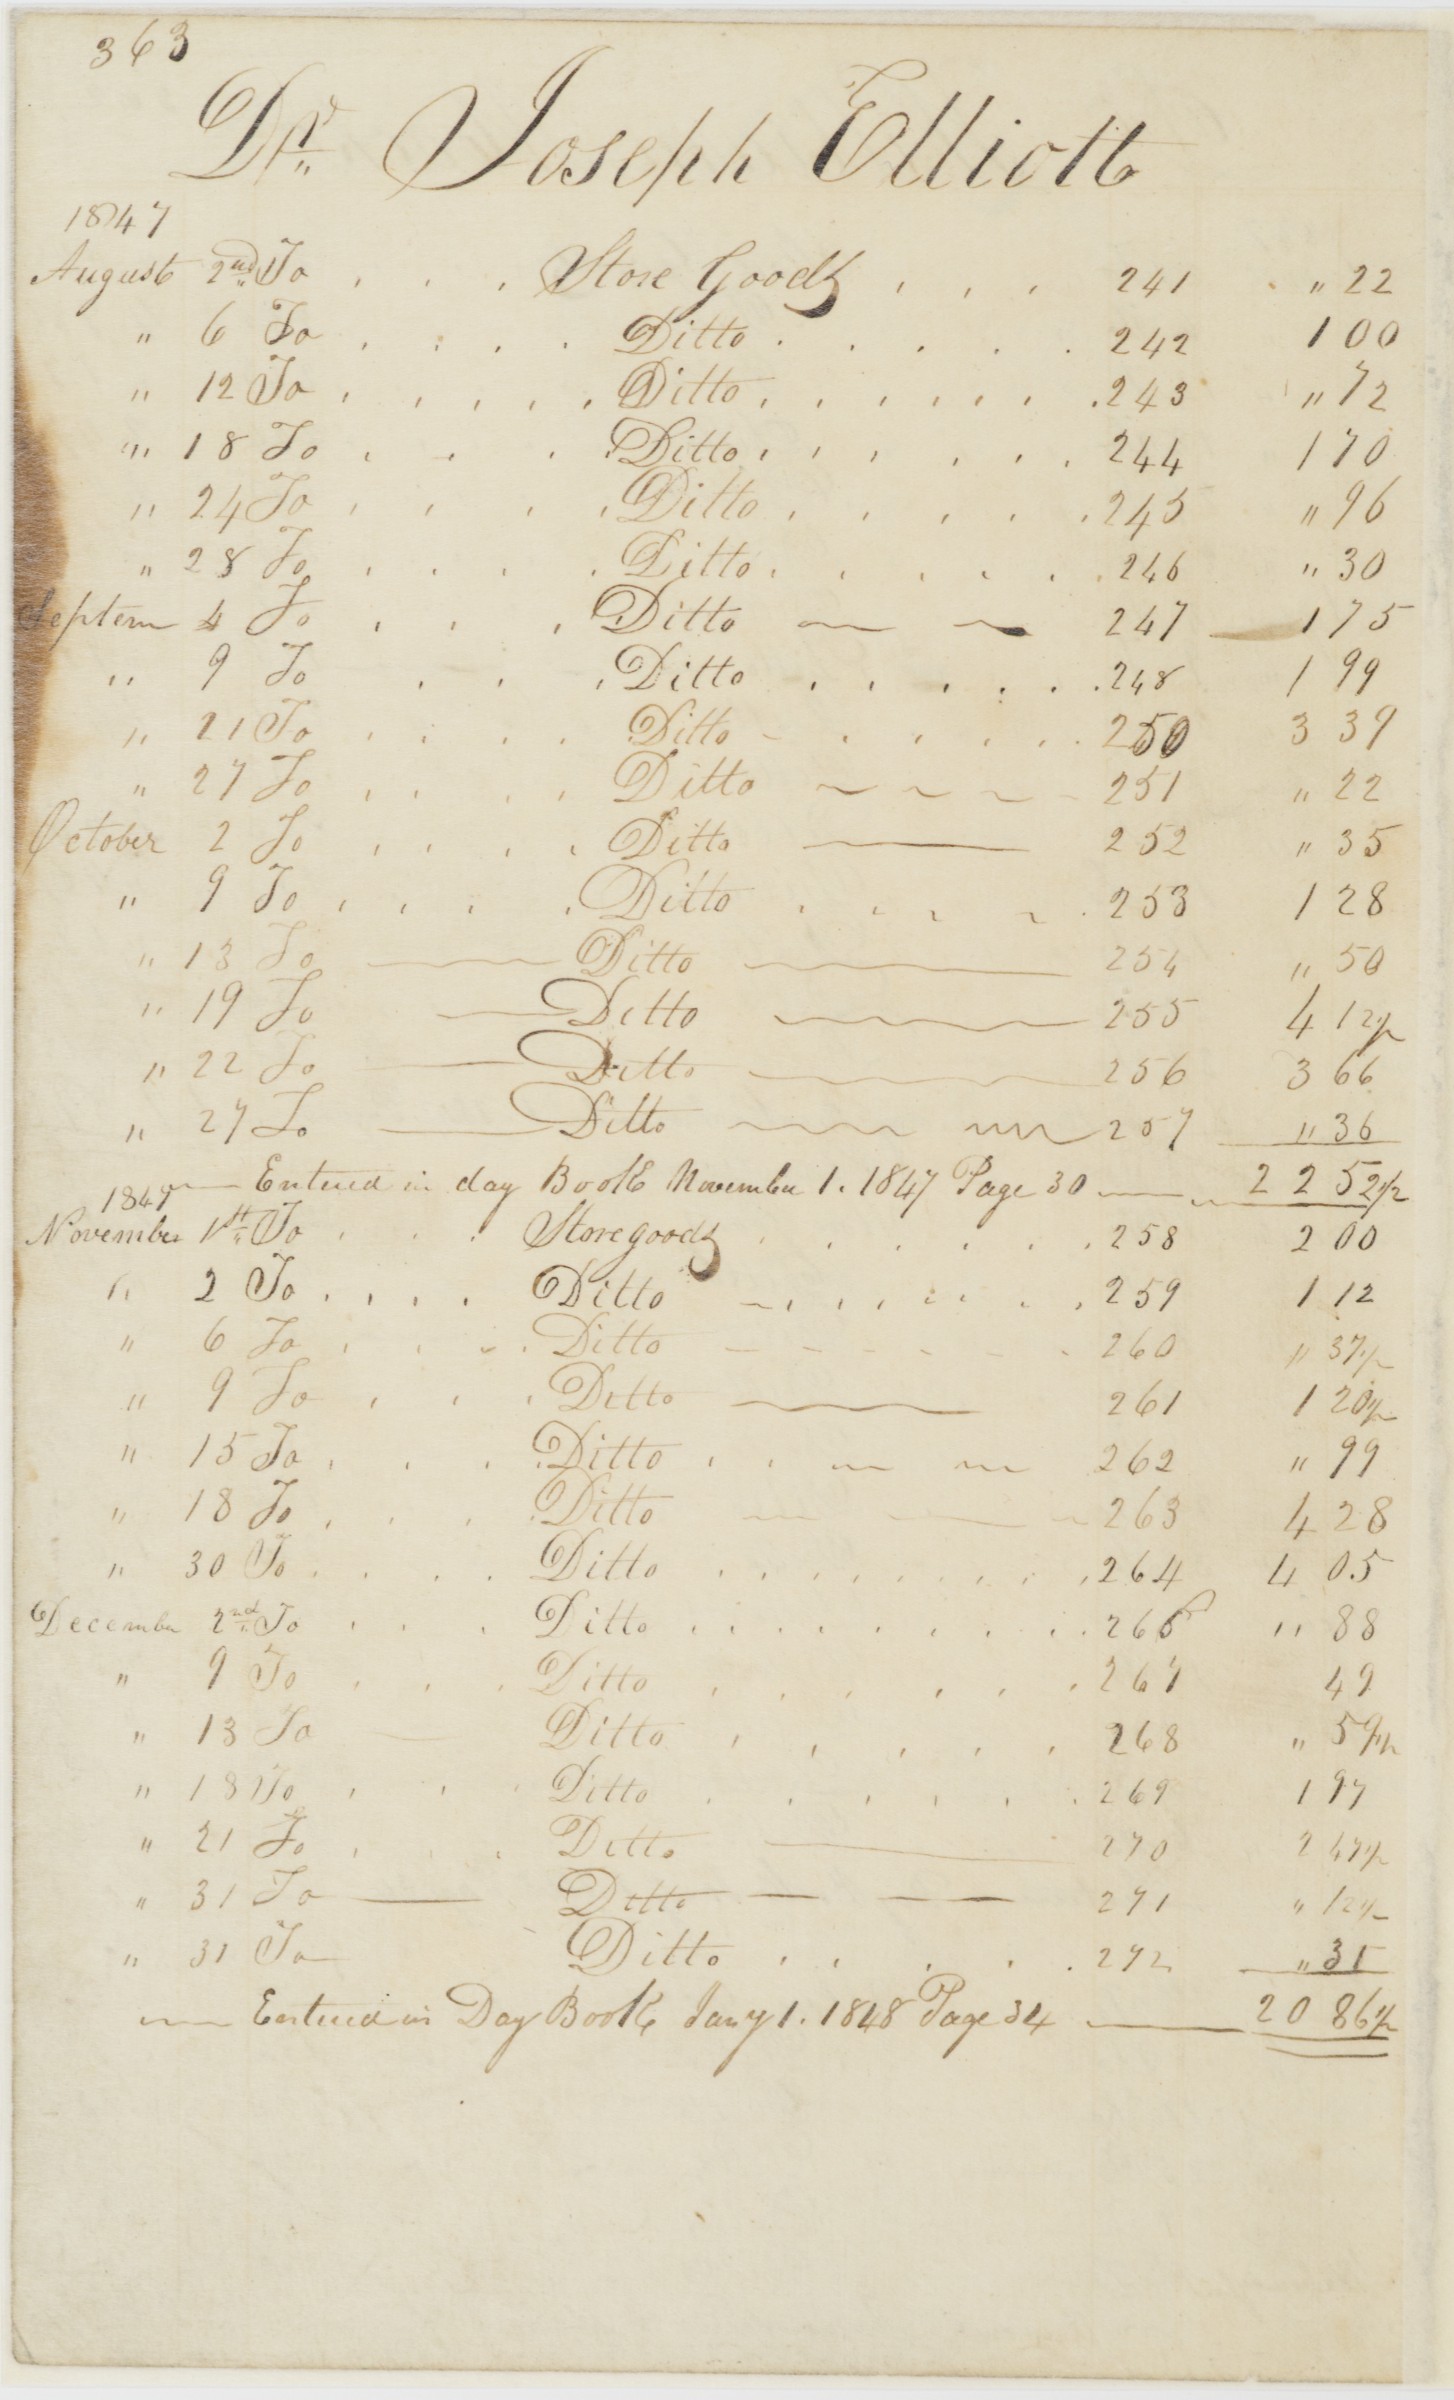 363
Dr. Joseph Elliott
1847
August 2nd To . . . Store Goods , , , 241 " 22
" 6 To . . . . Ditto . . . . . 242 1 00
" 12 To , , , , , Ditto , , , , , , .243 " 72
" 18 To , . . Ditto , , , , , . 244 1 70
" 24 To , , , , Ditto , , , , .245 " 96
" 28 To , . . . Ditto . . . . . 246 " 30
Septem 4 To , , , Ditto — — 247 — 1 75
" 9 To . . , Ditto , , , . . .248 1 99
" 21 To . . . . Ditto - . . . . 250 3 39
" 27 To , . , , Ditto ~ ~ ~ - 251 " 22
October 2 To , , , , Ditto — 252 " 35
" 9 To , , , . Ditto , , , ~ .253 1 28
" 13 To — Ditto — 254 " 50
" 19 To — Ditto — 255 4 12½
" 22 To — Ditto — 256 3 66
" 27 To — Ditto — — 257 " 36
— Entered in day Book November 1. 1847 Page 30 — 22 52½
1847
November 1st To . . . Store goods . . . . . . 258 2 00
" 2 To . . . . Ditto - , , , , , , , 259 1 12
" 6 To . . . . Ditto - - - - - . 260 " 37½
" 9 To , . , Ditto — 261 1 20½
" 15 To . . . . Ditto . . — — 262 " 99
" 18 To , . . . Ditto — — 263 4 28
" 30 To . . . . Ditto . . . . . . . . 264 4 05
December 2nd To . . . Ditto . . . . . . . . 265 " 88
" 9 To . . . Ditto , , , , , , . 267 49
" 13 To — Ditto , , , , . 268 " 59½
" 18 To , , , Ditto . , , , , . 269 1 97
" 21 To , . . Ditto — 270 2 47½
" 31 To — Ditto — — — 271 " 12½
" 31 To — Ditto , , . . . 272 " 31
— Entered in Day Book Jany 1. 1848 Page 34 — 20 86½